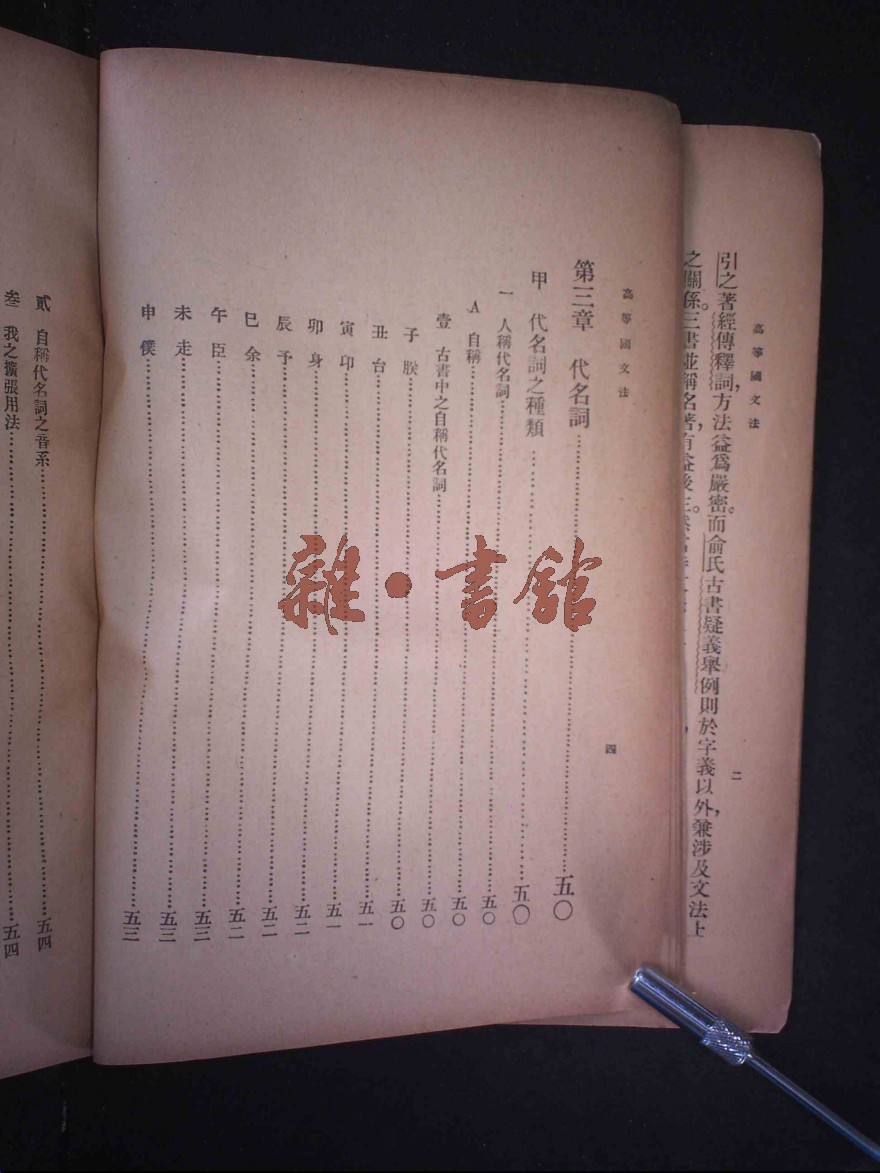 高等國文法
二
引之著經傳釋詞,方法益爲嚴密。而俞氏古書疑義舉例則於字義以外,兼涉及文法上
之關係。三書並稱名著,有益後
高等國文法
四
第三章 代名詞……五〇
甲 代名詞之種類……五〇
一 人稱代名詞……五〇
A 自稱……五〇
壹 古書中之自稱代名詞……五〇
子 朕……五〇
丑 台……五一
寅 卬……五一
卯 身……五二
辰 予……五二
巳 余……五二
午 臣……五三
未 走……五三
申 僕……五三
貳 自稱代名詞之音系……五四
叁 我之擴張用法……五四
雜·書館